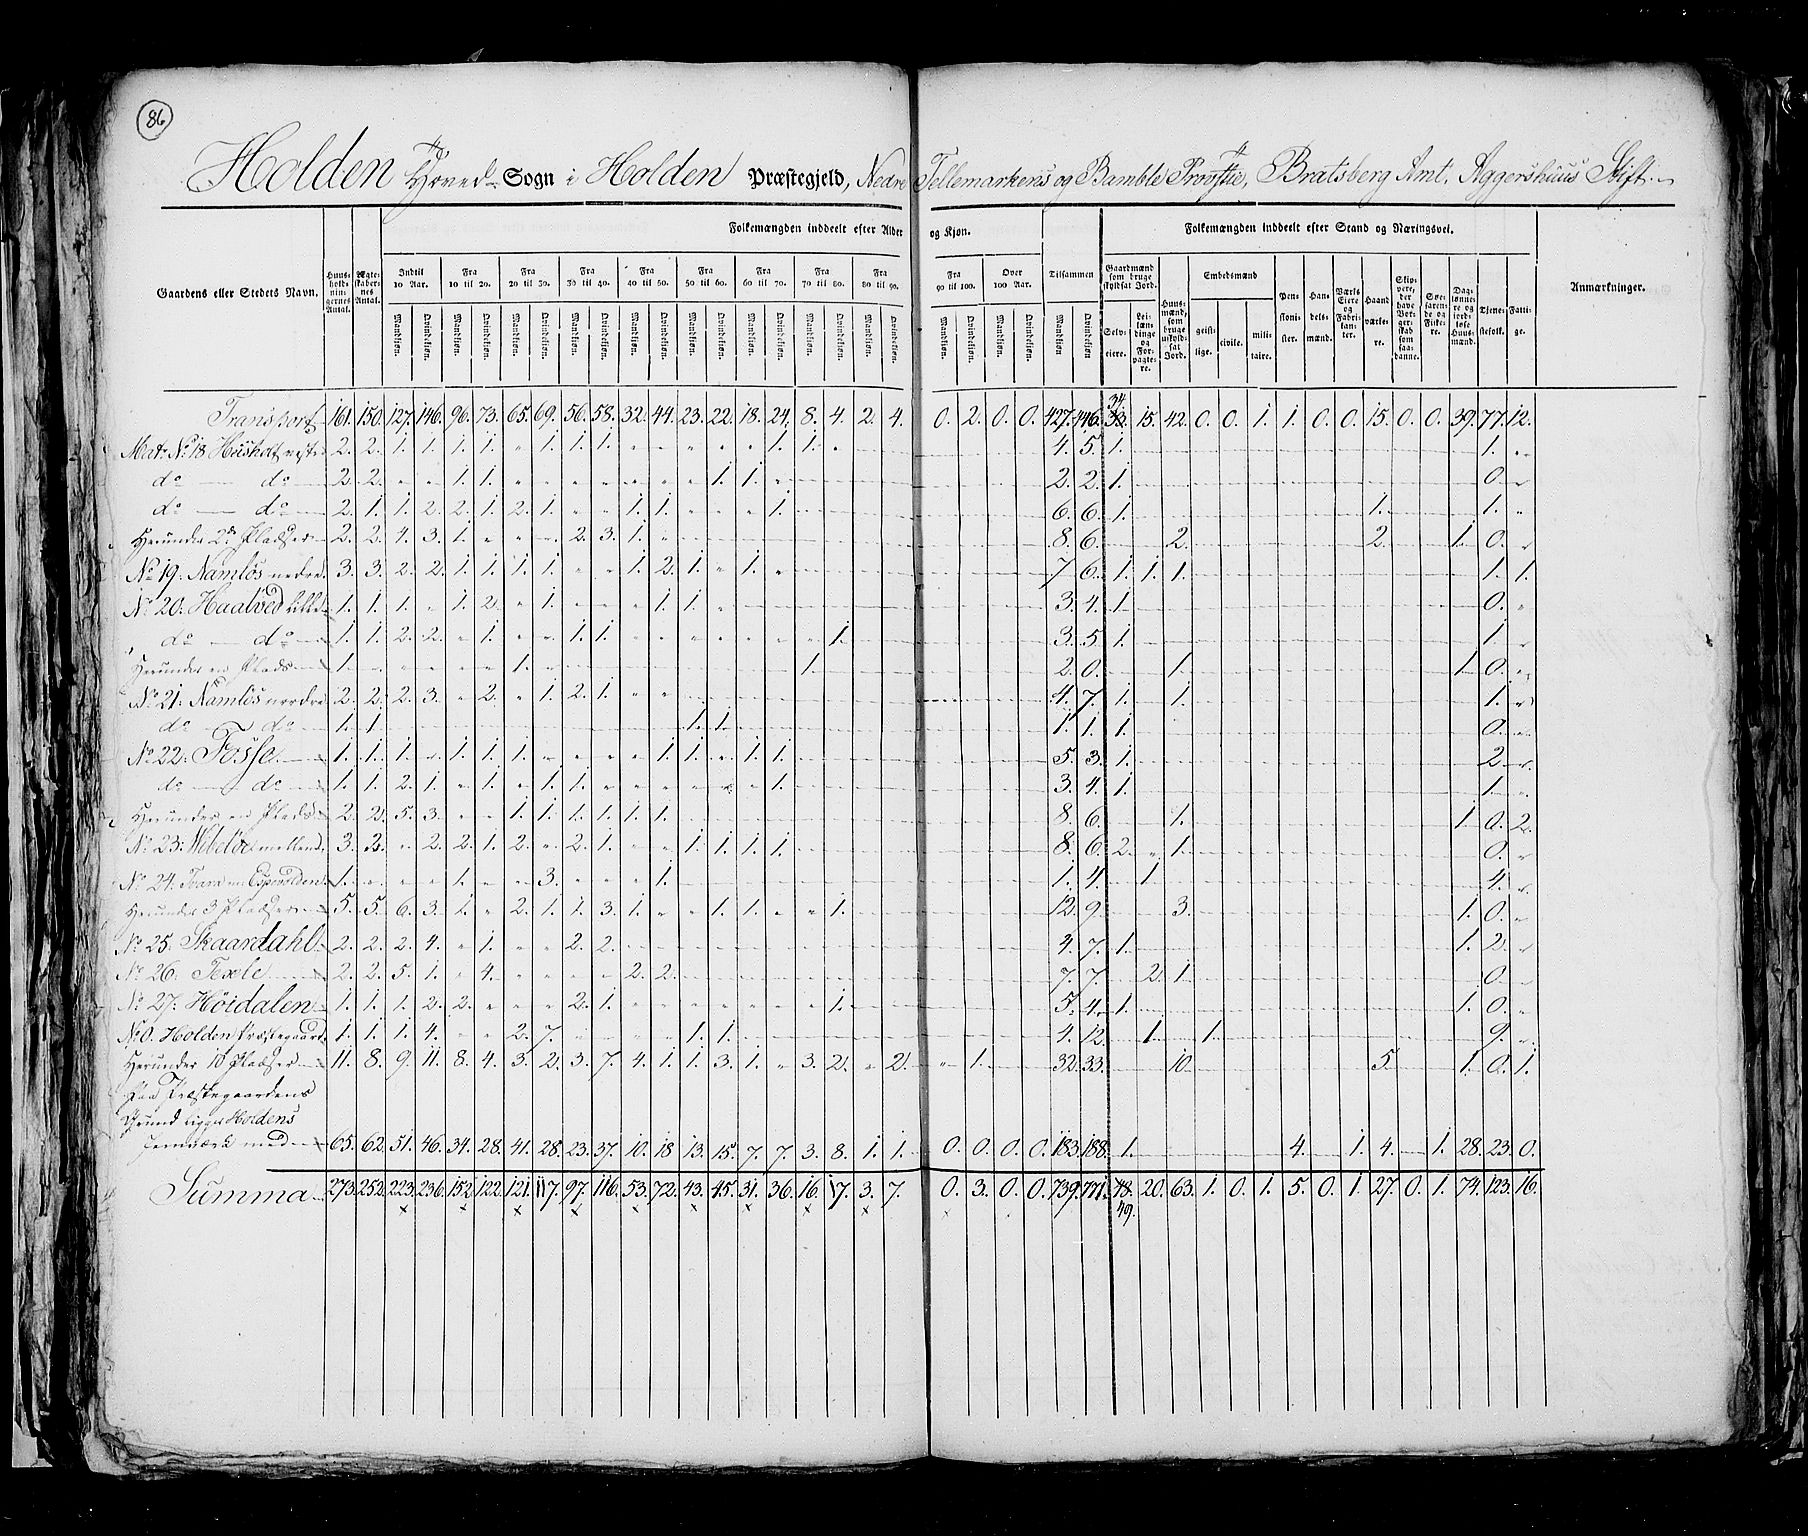 86
Holden Hoved Sogn i Holden Præstegjeld, Nedre Tellemarkens og Bamble Provstie, Bratsberg Amt, Aggershuus Stift.
Folkemængden inddeelt efter Alder og Kjøn. Folkemængden inddeelt efter Stand og Næringsvei.
Gaardens eller Stedets Navn. Huusholdningernes Antal. Ægteskabernes Antal. Indtil 10 Aar. Fra 10 til 20. Fra 20 til 30. Fra 30 til 40. Fra 40 til 50. Fra 50 til 60. Fra 60 til 70. Fra 70 til 80. Fra 80 til 90. Fra 90 til 100. Over 100 Aar. Tilsammen Gaardmænd som bruge skyldsat Jord. Huusmænd, som bruge uskyldsat Jord. Embedsmænd Pensionister. Handelsmænd. Værks Eiere og Fabrikanter. Haandværkere. Skippere, der have Borgerskab som saadanne. Søefarende og Fiskere. Daglønnere og jordløse Huusmænd. Tjenestefolk. Fattige. Anmærkninger.
Mandkjøn. Qvindekjøn. Mandkjøn. Qvindekjøn. Mandkjøn. Qvindekjøn. Mandkjøn. Qvindekjøn. Mandkjøn. Qvindekjøn. Mandkjøn. Qvindekjøn. Mandkjøn. Qvindekjøn. Mandkjøn. Qvindekjøn. Mandkjøn. Qvindekjøn. Mandkjøn. Qvindekjøn. Mandkjøn. Qvindekjøn. Mandkjøn Qvindekjøn. Selveiere. Leilændinge og Forpagtere. geistlige. civile. militaire.
Transport 161. 150. 127. 146. 96. 73. 65. 69. 56. 58. 32. 44. 23. 22. 18. 24. 8. 4. 2. 4. 0. 2. 0. 0. 427. 446. 34. 15. 42. 0. 0. 1. 1. 0. 0. 15. 0. 0. 39. 77. 12.
Matr. No 18 2. 2. 1. 1. 1. 1. " 1. 1. 1. 1. 1. 4. 5. 1. 1.
do do 2. 2. 1. 1. 1. 1. 2. 2. 1. 0.
do do 2. 1. 1. 2. 2. 1. 2. 1. 1. 1. 1. 6. 6. 1. 1. 1.
Herunder 2de Pladser 2. 2. 4. 3. 1. 2. 3. 1. 8. 6. 2. 2. 1. 0.
No 19. Namløs nedre 3. 3. 2. 2. 1. 1. 1. 1. 1. 2. 1. " 1. 7. 6. 1. 1. 1. 1. 1.
No 20. Haatved lille 1. 1. 1. " 1. 2. " 1. 1. 1. 3. 4. 1. 0.
do do 1. 1. 2. 2. " 1. 1. 1. 1. 3. 5. 1. 1.
Herunder en Plads 1. 1. 1. 2. 0. 1. 1. 0.
No 21. Namløs nordre 2. 2. 2. 3. " 2. " 1. 2. 1. 4. 7. 1. 1. 1.
do do 1. 1. 1. 1. 1. 1. 1. 0.
No 22. Fosse 1. 1. 1. " 1. 1. 1. 1. 1. " 1. 1. 5. 3. 1. 2.
do do 1. 1. 2. 1. " 1. " 1. 1. 1. 3. 4. 1. 1.
Herunder en Plads 2. 2. 5. 3. " " 1. 1. 1. 1. 1. 1. 8. 6. 1. 1. 0. 2.
No 23. mellem 3. 2. " 2. 2. 1. 2. " 2. 1. 1. 1. 1. 1. 8. 6. 2. " 1. 0.
No 24. Espevolden 1. 1. 3. 1. 1. 4. 1. 4.
Herunder 3 Pladser 5. 5. 6. 3. 1. " 2. 1. 1. 3. 1. 1. 1. 1. 12. 9. 3. 1. 0.
No 25. Skaardahl 2. 2. 2. 4. " 1. 2. 2. 4. 7. 1. 1. 2.
No 26. 2. 2. 5. 1. " 4. 2. 2. 7. 7. 2. 1. 0.
No 27. Høidalen 1. 1. 1. 2. 2. 2. 1. 1. 5. 4. 1. 1. 0.
No 0. Holden Præstegaard 1. 1. 1. 4. 2. 7. 1. 1. 4. 12. 1. 1. 9.
Herunder 10 Pladser 11. 8. 9. 11. 8. 4. 3. 2. 3. 7. 4. 1. 1. 3. 1. " 3. 2. " 2. " 1. 32. 33. 10. 5. 1. 0. 1.
Paa Præstegaardens
Grund ligger Holdens
Jernværk med 65. 62. 51. 46. 34. 28. 41. 28. 23. 37. 10. 18. 13. 15. 7. 7. 3. 8. 1. 1. 0. 0. 0. 0. 183. 188. 1. 4. 1. 4. 1. 28. 23. 0.
Summa 273. 252. 223. 236. 152. 122. 121. 117. 97. 116. 53. 72. 43. 45. 31. 36. 16. 17. 3. 7. 0. 3. 0. 0. 739. 771. 48. 20. 63. 1. 0. 1. 5. 0. 1. 27. 0. 1. 74. 123. 16.
49.